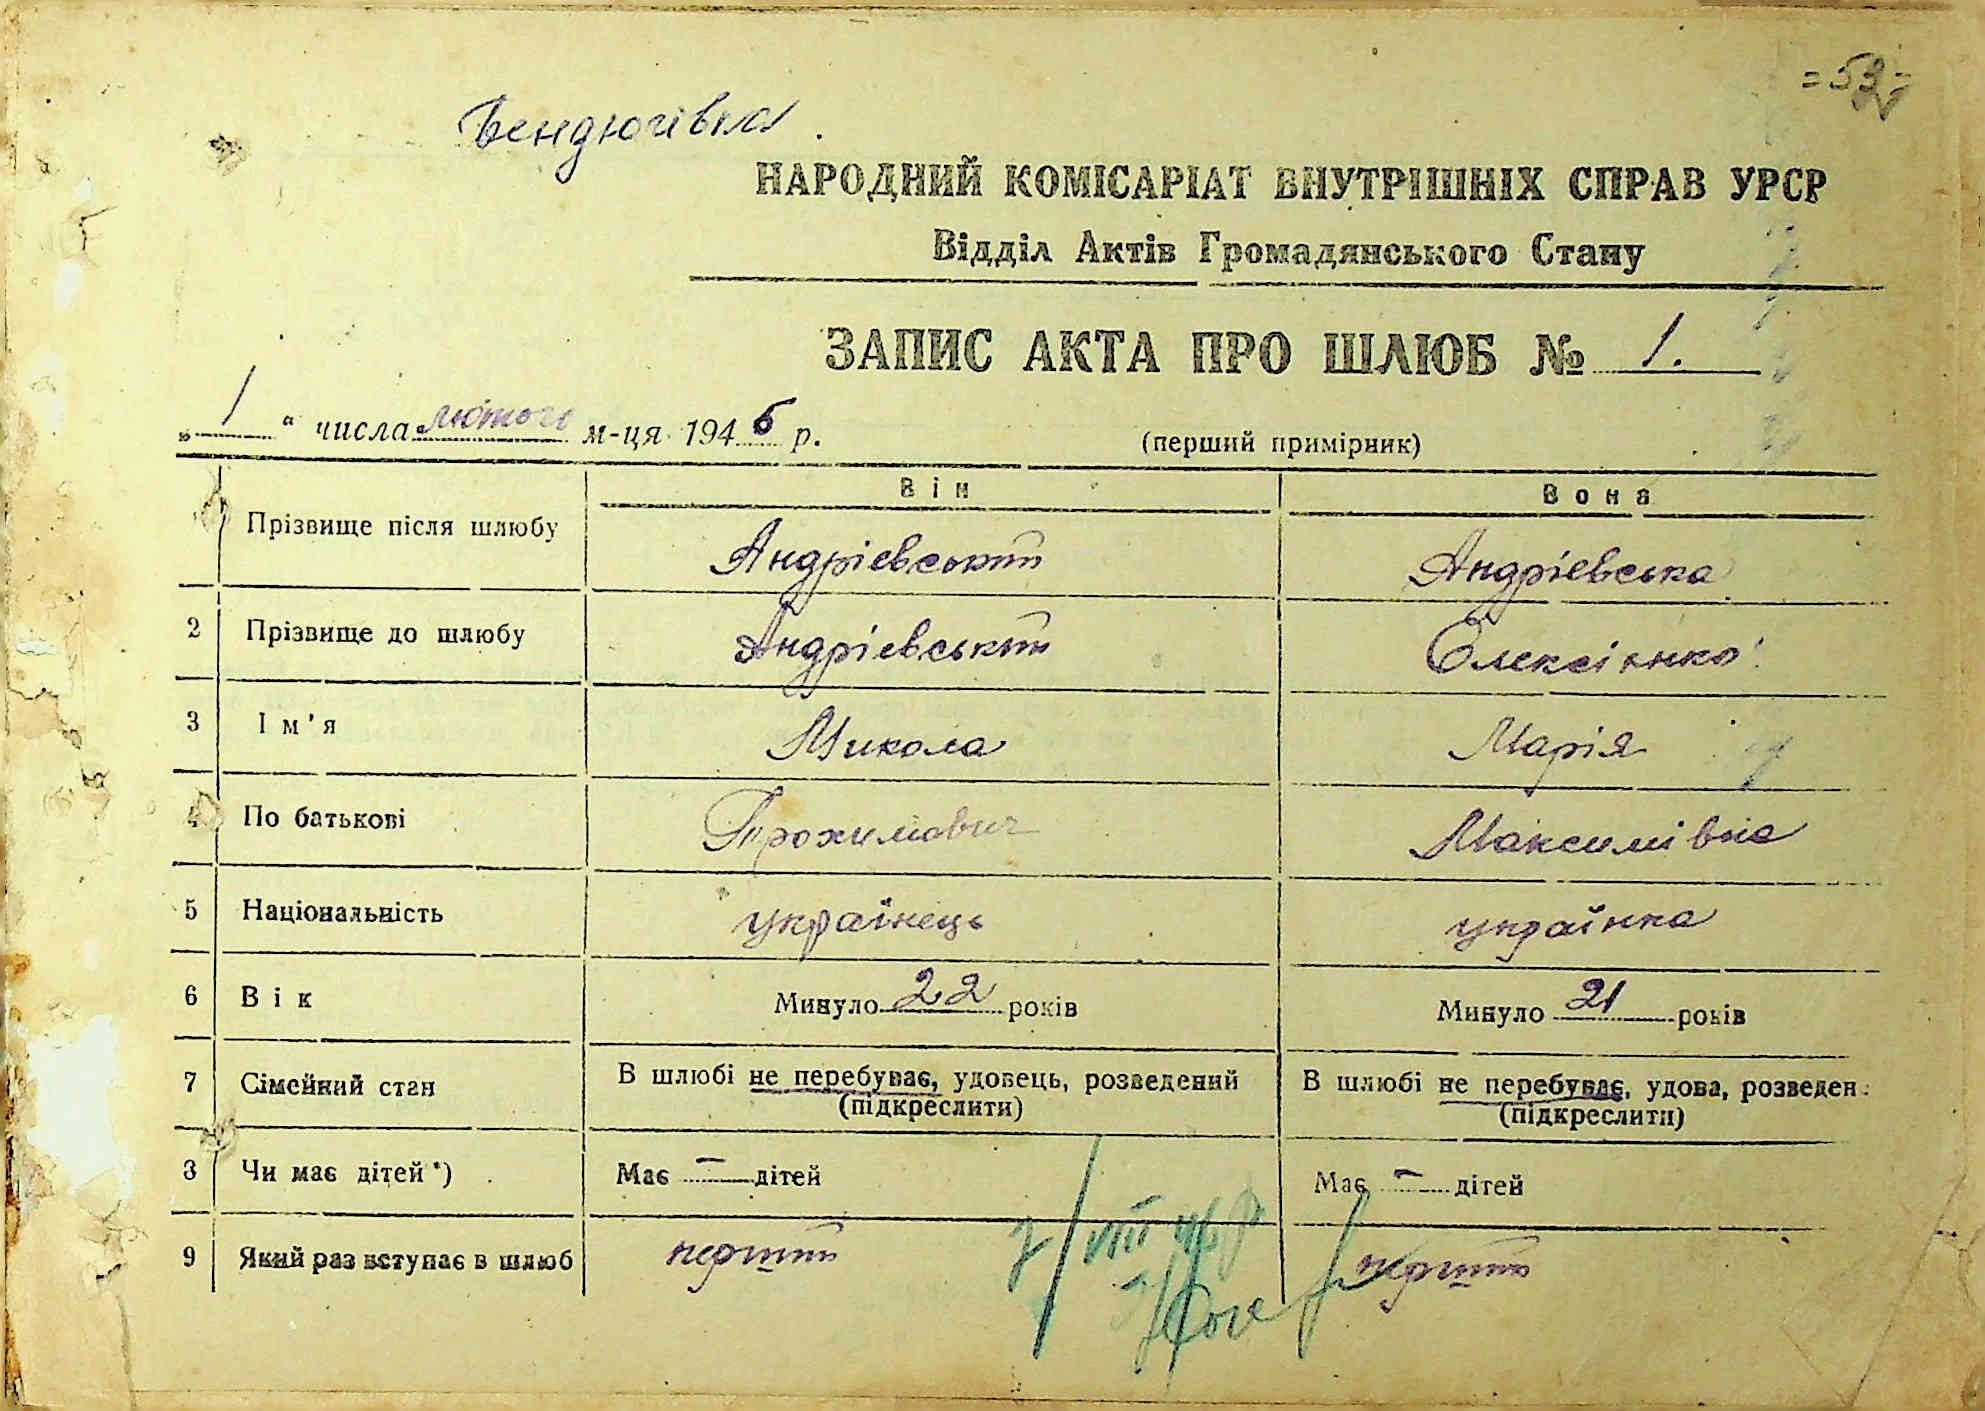 = 53 =
Бендюгівка.
НАРОДНИЙ КОМІСАРІАТ ВНУТРІШНІХ СПРАВ УРСР
Відділ Актів Громадянського Стану
ЗАПИС АКТА ПРО ШЛЮБ № 1.
„ 1 " числа лютого м-ця 1946 р.
(перший примірник)
Він Вона
Прізвище після шлюбу Андріевський Андріевська
2 Прізвище до шлюбу Андріевський Олексіенко
3 Ім'я Микола Марія
4 По батькові Трохимович Максимівна
5 Національність українець українка
6 Вік Минуло 22 років Минуло 21 років
7 Сімейний стан В шлюбі не перебуває, удовець, розведений В шлюбі не перебуває, удова, розведен
(підкреслити) (підкреслити)
8 Чи має дітей*) Має – дітей Має – дітей
9 Який раз вступає в шлюб перший перший